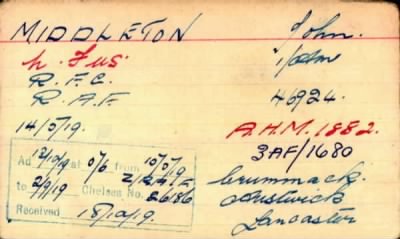 MIDDLETON John.
N. Fus. 1/Am
R.F.C. 46924.
R.A.F.
14/5/19. A.H.M. 1882.
3AF/1680
Ad 12/10/19 at 0/6 from 10/5/19
to 2/9/19 Chelsea No.
Received 18/10/19.
Crummack.
Austwick
Lancaster